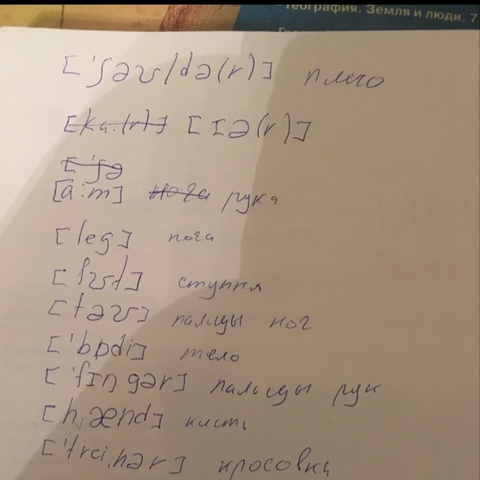 География. Земля и люди. 7
['ʃəʊldə(r)] плечо
[ka:(r)] [ɪə(r)]
['ʃə
[a:m] нога рука
[leg] нога
[fʊt] ступня
[təʊ] пальцы ног
['bɒdi] тело
['fɪŋ.gər] пальцы рук
[h,ænd] кисть
['trei,nər] кросовки